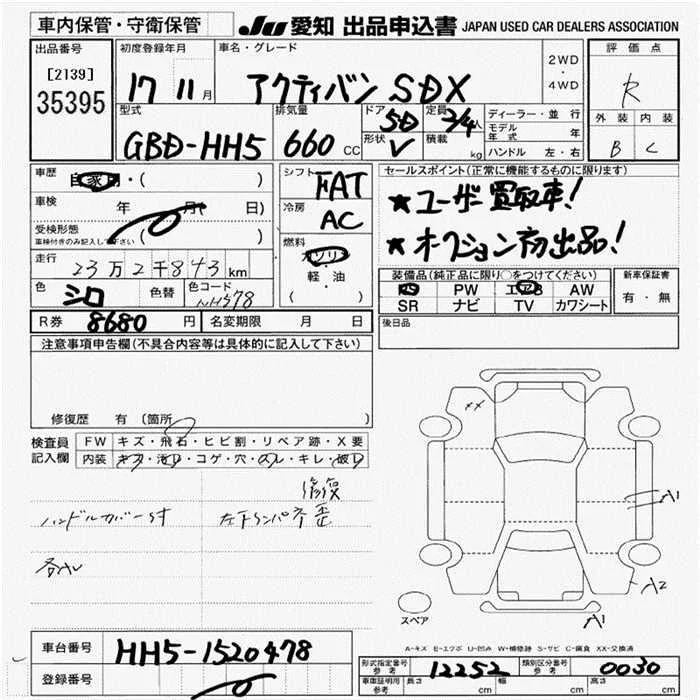 車内保管・守衛保管
JU 愛知 出品申込書 JAPAN USED CAR DEALERS ASSOCIATION
出品番号
[2139]
35395
初度登録年月
17 11月
車名・グレード
アクティバン SDX
2WD
・
4WD
評価点
R
外装 内装
B C
型式
GBD-HH5
排気量
660 CC
ドア
5D
形状
V
定員
2/4人
積載
kg
ディーラー・並行
モデル年式 年
ハンドル 左・右
車歴
自家用・( )
車検 年 月( 日)
受検形態 ( )
車検付きのみ記入して下さい
走行
23万2千843km
色
シロ
色替
色コード
NH578
シフト
FAT
冷房
AC
燃料
ガソリン
軽・油
( )
セールスポイント(正常に機能するものに限ります)
★ユーザー買取車!
★オークション初出品!
装備品(純正品に限り○をつけてください)
PS PW エアB AW
SR ナビ TV カワシート
新車保証書
有・無
R券 8680円
名変期限 月 日
後日品
注意事項申告欄(不具合内容等は具体的に記入して下さい)
修復歴 有 (箇所 )
検査員記入欄
FW キズ・飛石・ヒビ割・リペア跡・X要
内装 キズ・汚れ・コゲ・穴・スレ・キレ・破れ
修復
ハンドルカバー付
各AU
XX
A1
A2
A1
スペア
A-キズ E-エクボ U-凹み W-補修跡 S-サビ C-腐食 XX-交換済
車台番号 HH5-1520478
登録番号
形式指定番号 参考 12252
類別区分番号 参考 0030
車庫証明用 参考 長さ cm 幅 cm 高さ cm